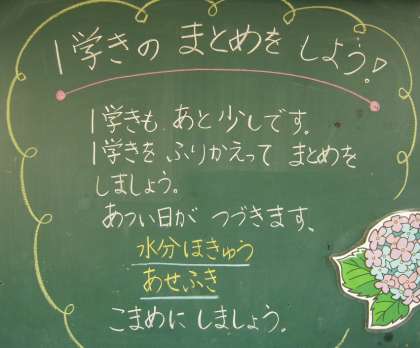 1学きの まとめを しよう!
1学きも あと 少しです。
1学きを ふりかえって まとめを
しましょう。
あつい日が つづきます、
水分ほきゅう
あせふき
こまめに しましょう。